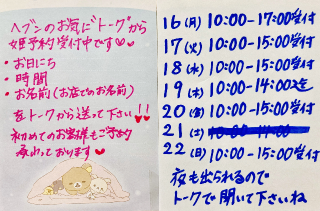 ヘブンのお気に"トーク"から
姫予約受付中です♥♥
・お日にち
・時間
・お名前(お店でのお名前)
をトークから送って下さい!!
初めてのお客様もご予約
承わっております♥
16(月) 10:00-17:00受付
17(火) 10:00-15:00受付
18(水) 10:00-15:00受付
19(木) 10:00-14:00迄
20(金) 10:00-15:00受付
21(土)
22(日) 10:00-15:00受付
夜も出られるので
トークで聞いて下さいね